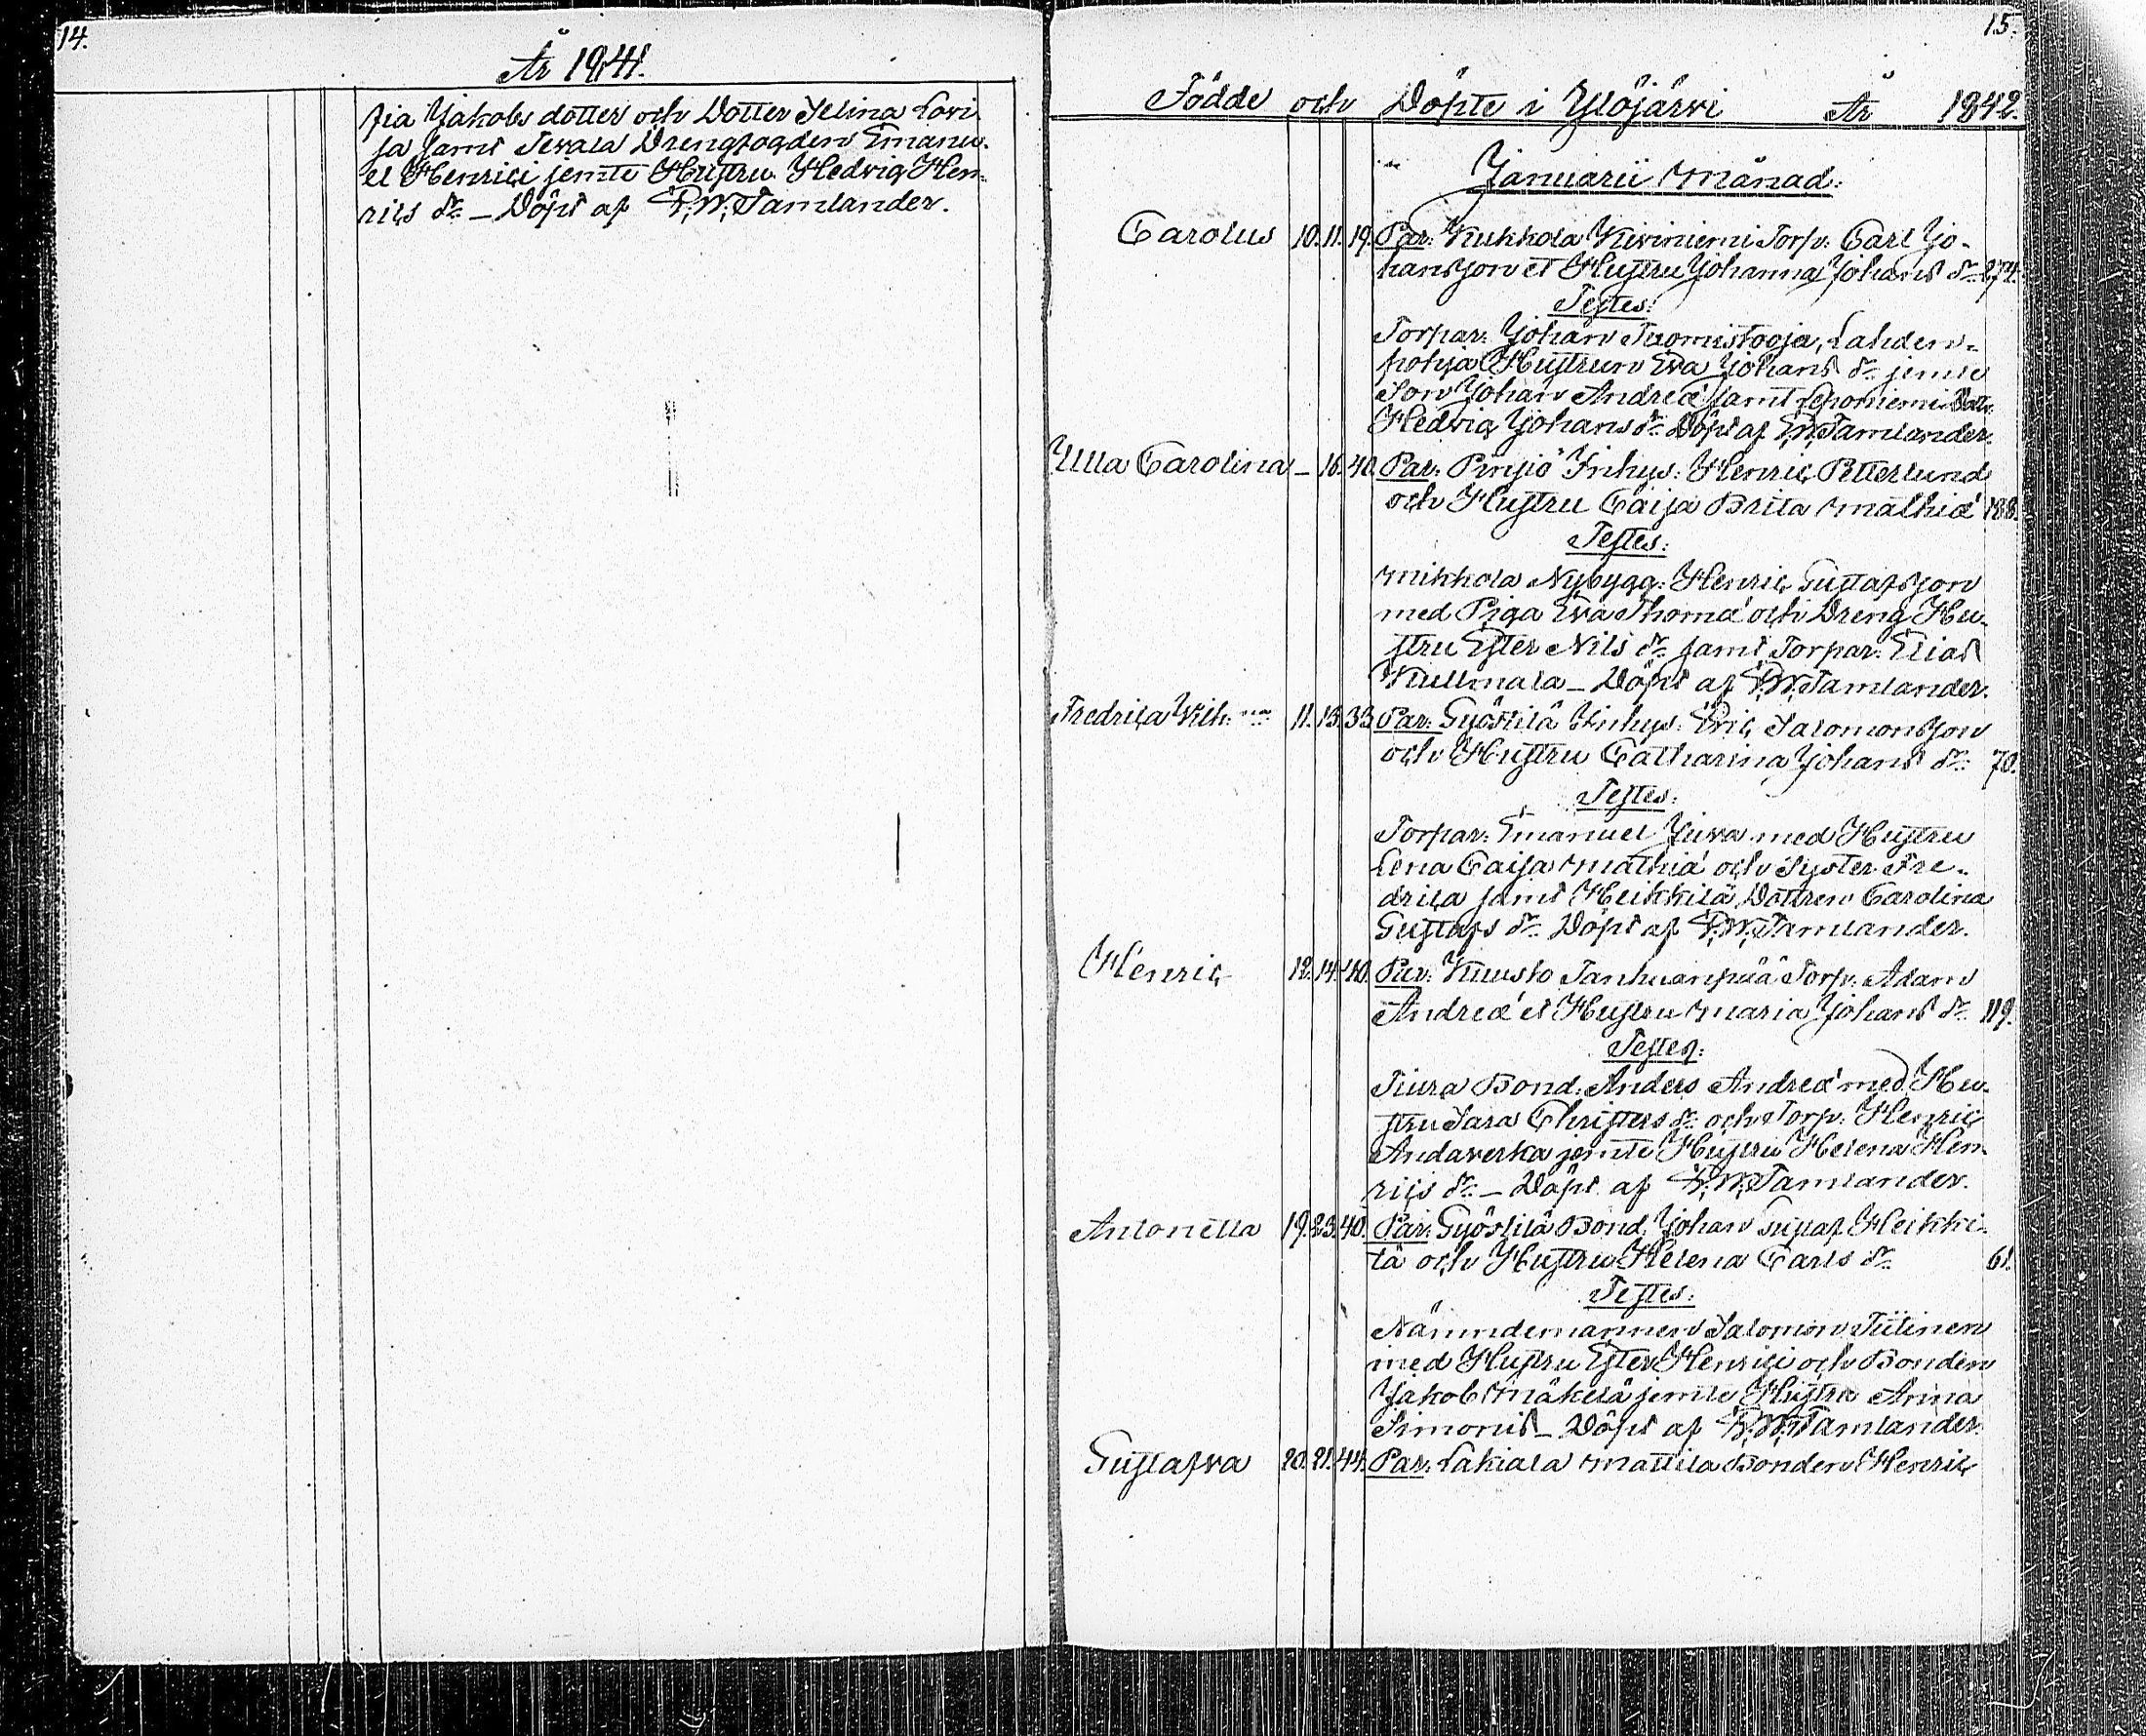 14.
År 1841.
fia Jakobs dotter och Dotter Selina Lovi
sa samt Sevala Drengfogden Emanu-
el Henrici jemte Hustru Hedvig Hen-
rics dr. – Döpt af P.W. Tamlander.
15.
Födde och Döpte i Ylöjärvi År 1842.
Januarii Månad.
Carolus 10. 11. 19. Par: Kukkola Kiviniemi Torp: Carl Jo-
hansson et Hustru Johanna Johans dr. 274.
Testes:
Torpar: Johan Tuomistooja, Lahden-
pohja Hustrun Eva Johans dr. jemte
Son Johan Andreæ samt Leponiemi Dottr.
Hedvig Johans dr. Döpt af P.W. Tamlander.
Ulla Carolina – 16. 40. Par: Pinsiö Inhys: Henric Petterlund
och Hustru Caisa Brita Mathiæ 188.
Testes:
Mikkola Nybygg: Henric Gustafsson
med Piga Eva Thomæ och Dreng Hu-
stru Ester Nils dr. samt Torpar: Elias
Kullmala – Döpt af P.W. Tamlander.
Fredrica Vilh: na 11. 13. 33. Par: Gyöstilä Inhys: Eric Salomonsson
och Hustru Catharina Johans dr. 70.
Testes:
Torpar: Emanuel Juva med Hustru
Lena Caisa Mathiæ och Syster Fre-
drica samt Heikkilä Dottren Carolina
Gustafs dr. Döpt af P.W. Tamlander.
Henric 12. 14. 40. Par: Kuusto Tanhuanpää Torp: Adam
Andreæ et Hustru Maria Johans dr. 119.
Testes:
Tiura Bond: Anders Andreæ med Hu-
stru Sara Christers dr. och Torp: Henric
Andaverka jemte Hustru Helena Hen-
rics dr. – Döpt af P.W. Tamlander.
Antonetta 19. 23. 40. Par: Gyöstilä Bond: Johan Gustaf Heikki-
lä och Hustru Helena Carls dr. 61.
Testes:
Nämndemannen Salomon Tiitinen
med Hustru Ester Henrici och Bonden
Jakob Mäkelä jemte Hustru Anna
Simonis – Döpt af P.W. Tamlander.
Gustafva 20. 21. 44. Par: Lakiala Mattila Bonden Henric